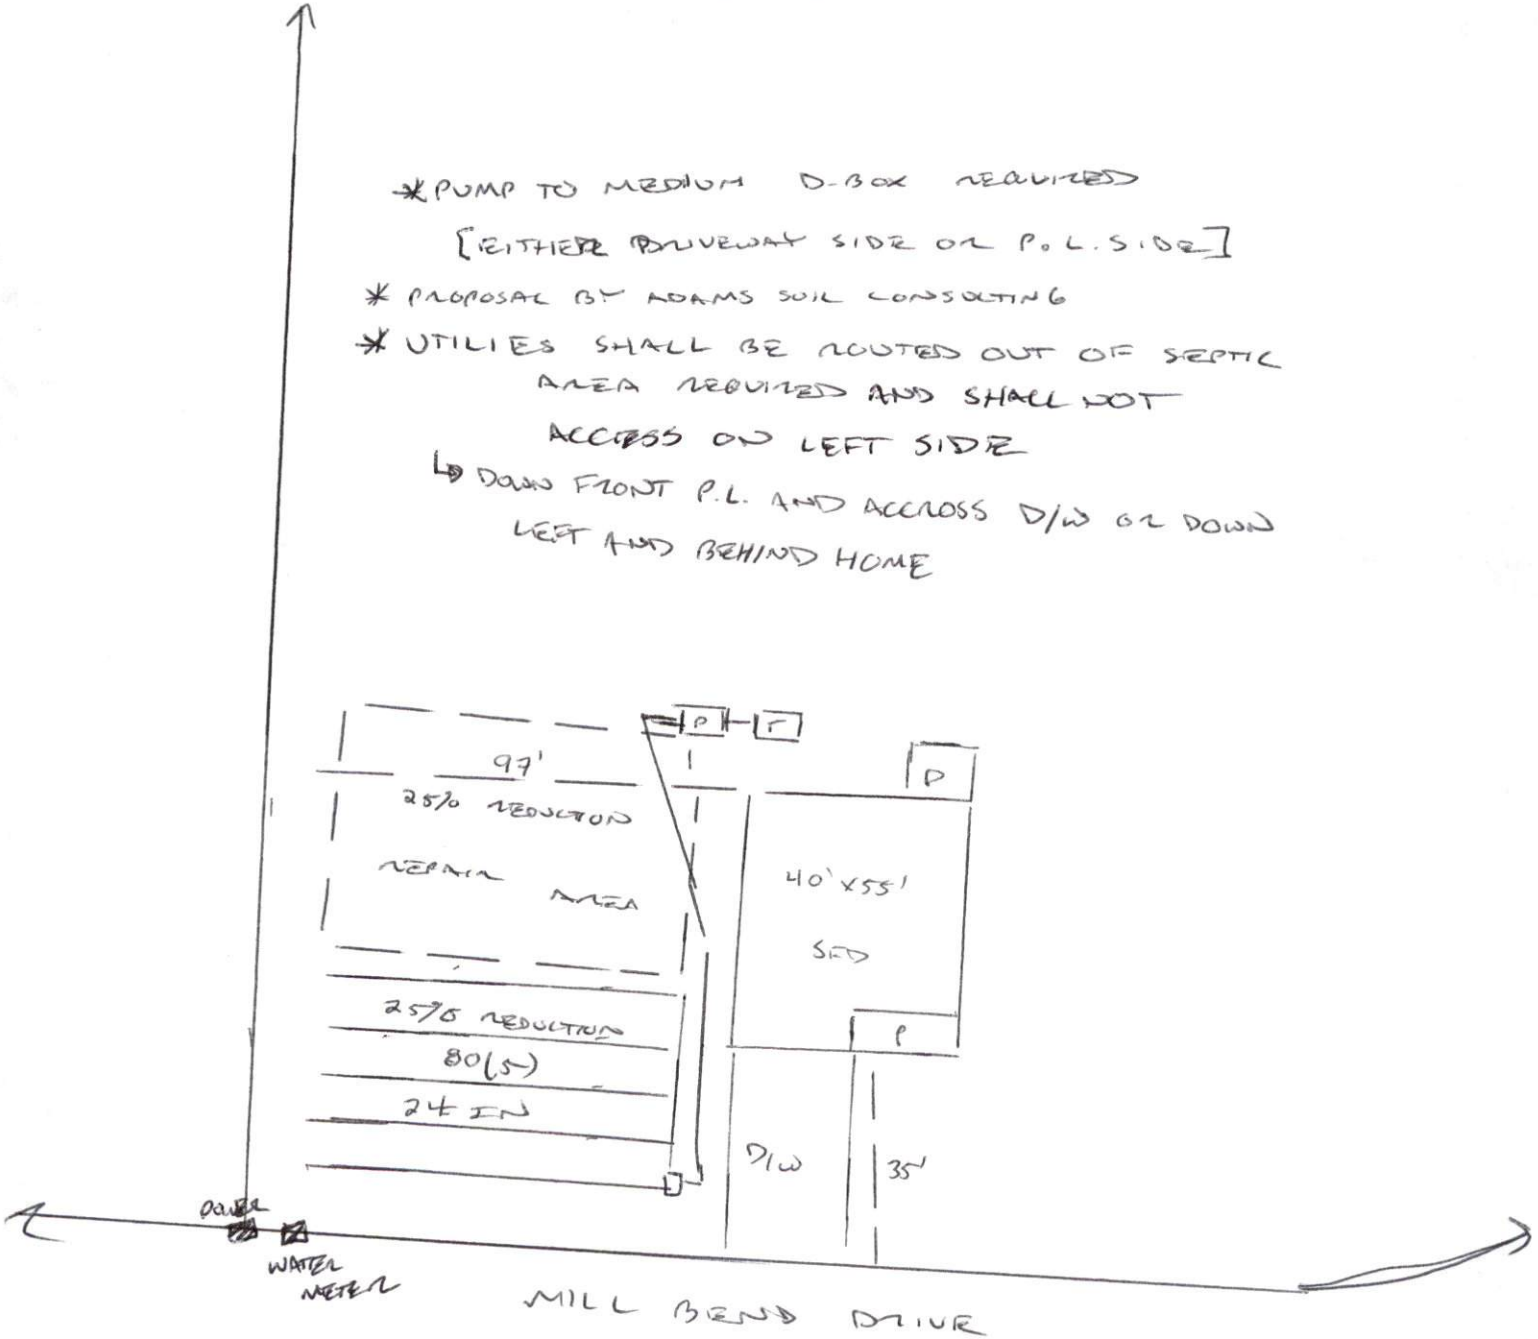 * PUMP TO MEDIUM D-BOX REQUIRED
[EITHER DRIVEWAY SIDE OR P.L. SIDE]
* PROPOSAL BY ADAMS SOIL CONSULTING
* UTILIES SHALL BE ROUTED OUT OF SEPTIC
AREA REQUIRED AND SHALL NOT
ACCESS ON LEFT SIDE
↳ DOWN FRONT P.L. AND ACCROSS D/W OR DOWN
LEFT AND BEHIND HOME
P
T
97'
D
25% REDUCTION
REPAIR AREA
40'x55'
SFD
25% REDUCTION
P
80(5)
24 IN
D/W
35'
POWER
WATER
METER
MILL BEND DRIVE